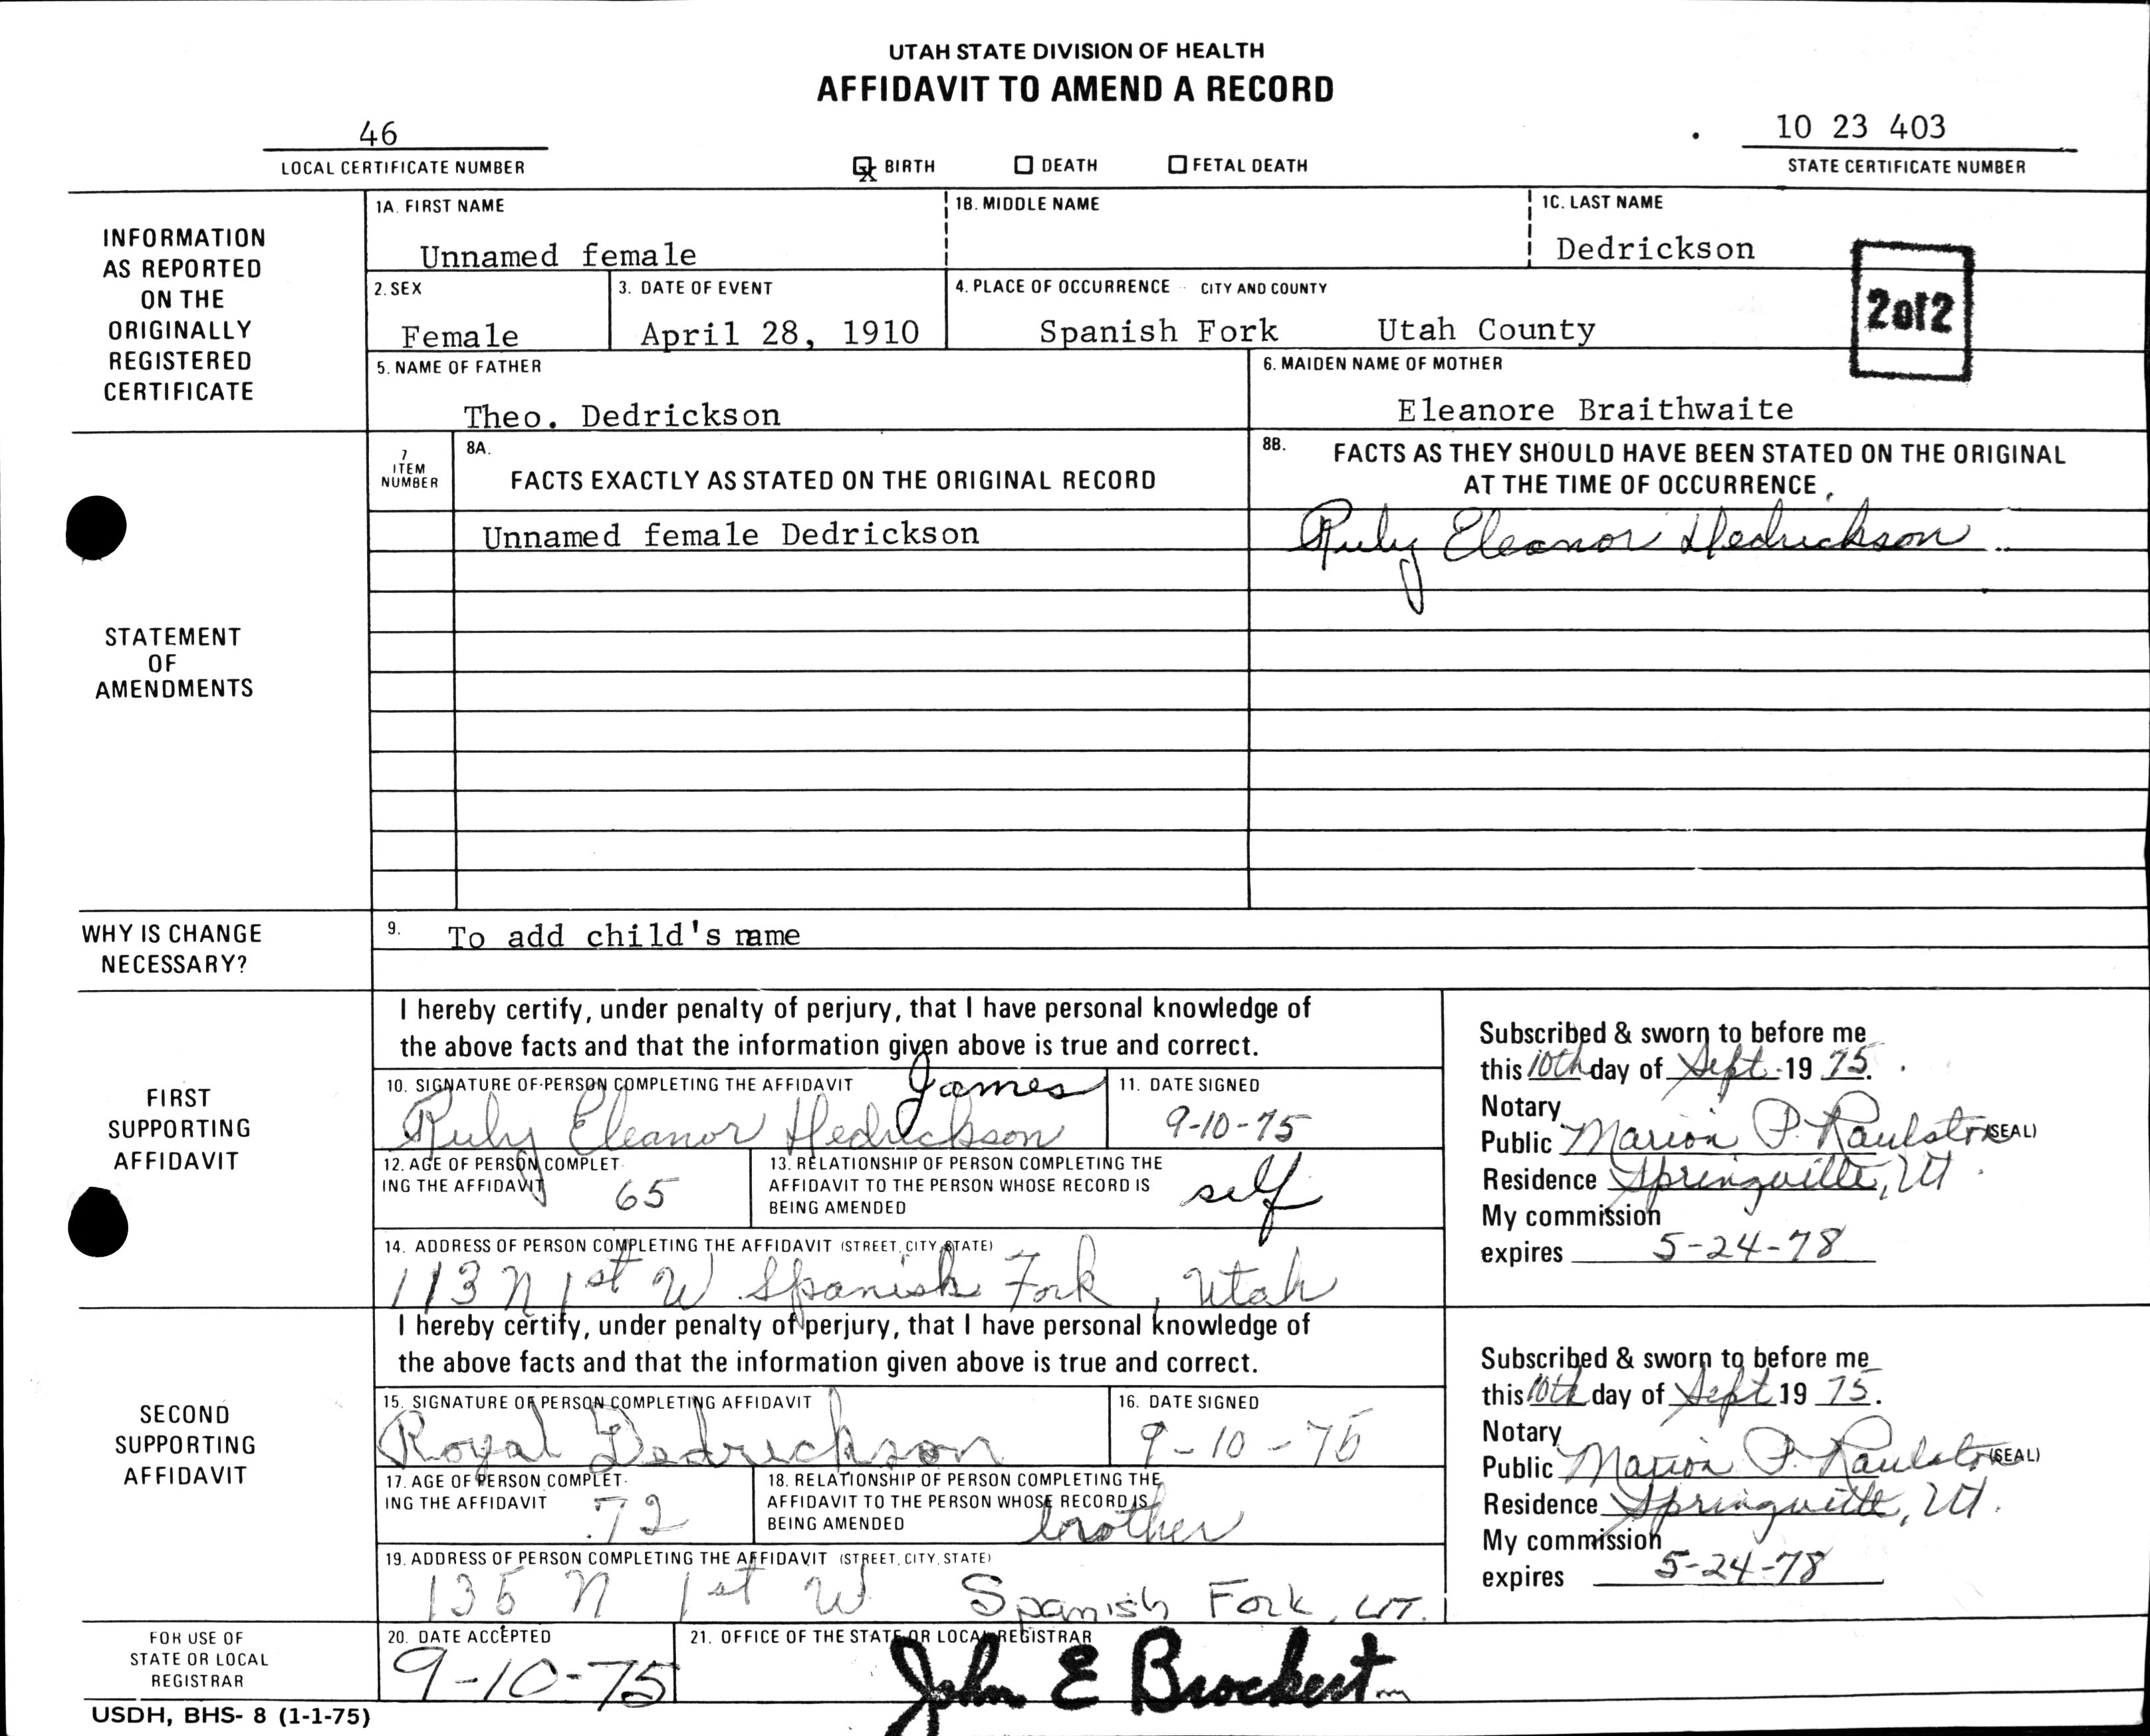 UTAH STATE DIVISION OF HEALTH
AFFIDAVIT TO AMEND A RECORD
46
LOCAL CERTIFICATE NUMBER
X BIRTH
DEATH
FETAL DEATH
10 23 403
STATE CERTIFICATE NUMBER
INFORMATION
AS REPORTED
ON THE
ORIGINALLY
REGISTERED
CERTIFICATE
1A. FIRST NAME
Unnamed female
1B. MIDDLE NAME
1C. LAST NAME
Dedrickson
2 of 2
2. SEX
Female
3. DATE OF EVENT
April 28, 1910
4. PLACE OF OCCURRENCE CITY AND COUNTY
Spanish Fork Utah County
5. NAME OF FATHER
Theo. Dedrickson
6. MAIDEN NAME OF MOTHER
Eleanore Braithwaite
STATEMENT
OF
AMENDMENTS
7
ITEM
NUMBER
8A.
FACTS EXACTLY AS STATED ON THE ORIGINAL RECORD
8B. FACTS AS THEY SHOULD HAVE BEEN STATED ON THE ORIGINAL
AT THE TIME OF OCCURRENCE
Unnamed female Dedrickson
Ruby Eleanor Dedrickson
WHY IS CHANGE
NECESSARY?
9. To add child's name
FIRST
SUPPORTING
AFFIDAVIT
I hereby certify, under penalty of perjury, that I have personal knowledge of
the above facts and that the information given above is true and correct.
10. SIGNATURE OF PERSON COMPLETING THE AFFIDAVIT
James
Ruby Eleanor Dedrickson
11. DATE SIGNED
9-10-75
12. AGE OF PERSON COMPLET-
ING THE AFFIDAVIT 65
13. RELATIONSHIP OF PERSON COMPLETING THE
AFFIDAVIT TO THE PERSON WHOSE RECORD IS
BEING AMENDED
self
14. ADDRESS OF PERSON COMPLETING THE AFFIDAVIT (STREET, CITY, STATE)
113 N 1st W Spanish Fork, Utah
Subscribed & sworn to before me
this 10th day of Sept. 19 75.
Notary
Public Marion P. Raulston (SEAL)
Residence Springville, Ut
My commission
expires 5-24-78
SECOND
SUPPORTING
AFFIDAVIT
I hereby certify, under penalty of perjury, that I have personal knowledge of
the above facts and that the information given above is true and correct.
15. SIGNATURE OF PERSON COMPLETING AFFIDAVIT
Royal Dedrickson
16. DATE SIGNED
9-10-75
17. AGE OF PERSON COMPLET-
ING THE AFFIDAVIT 72
18. RELATIONSHIP OF PERSON COMPLETING THE
AFFIDAVIT TO THE PERSON WHOSE RECORD IS
BEING AMENDED
brother
19. ADDRESS OF PERSON COMPLETING THE AFFIDAVIT (STREET, CITY, STATE)
135 N 1st W Spanish Fork, UT.
Subscribed & sworn to before me
this 10th day of Sept 19 75.
Notary
Public Marion P. Raulston (SEAL)
Residence Springville, Ut.
My commission
expires 5-24-78
FOR USE OF
STATE OR LOCAL
REGISTRAR
20. DATE ACCEPTED
9-10-75
21. OFFICE OF THE STATE OR LOCAL REGISTRAR
John E Brockert
USDH, BHS- 8 (1-1-75)